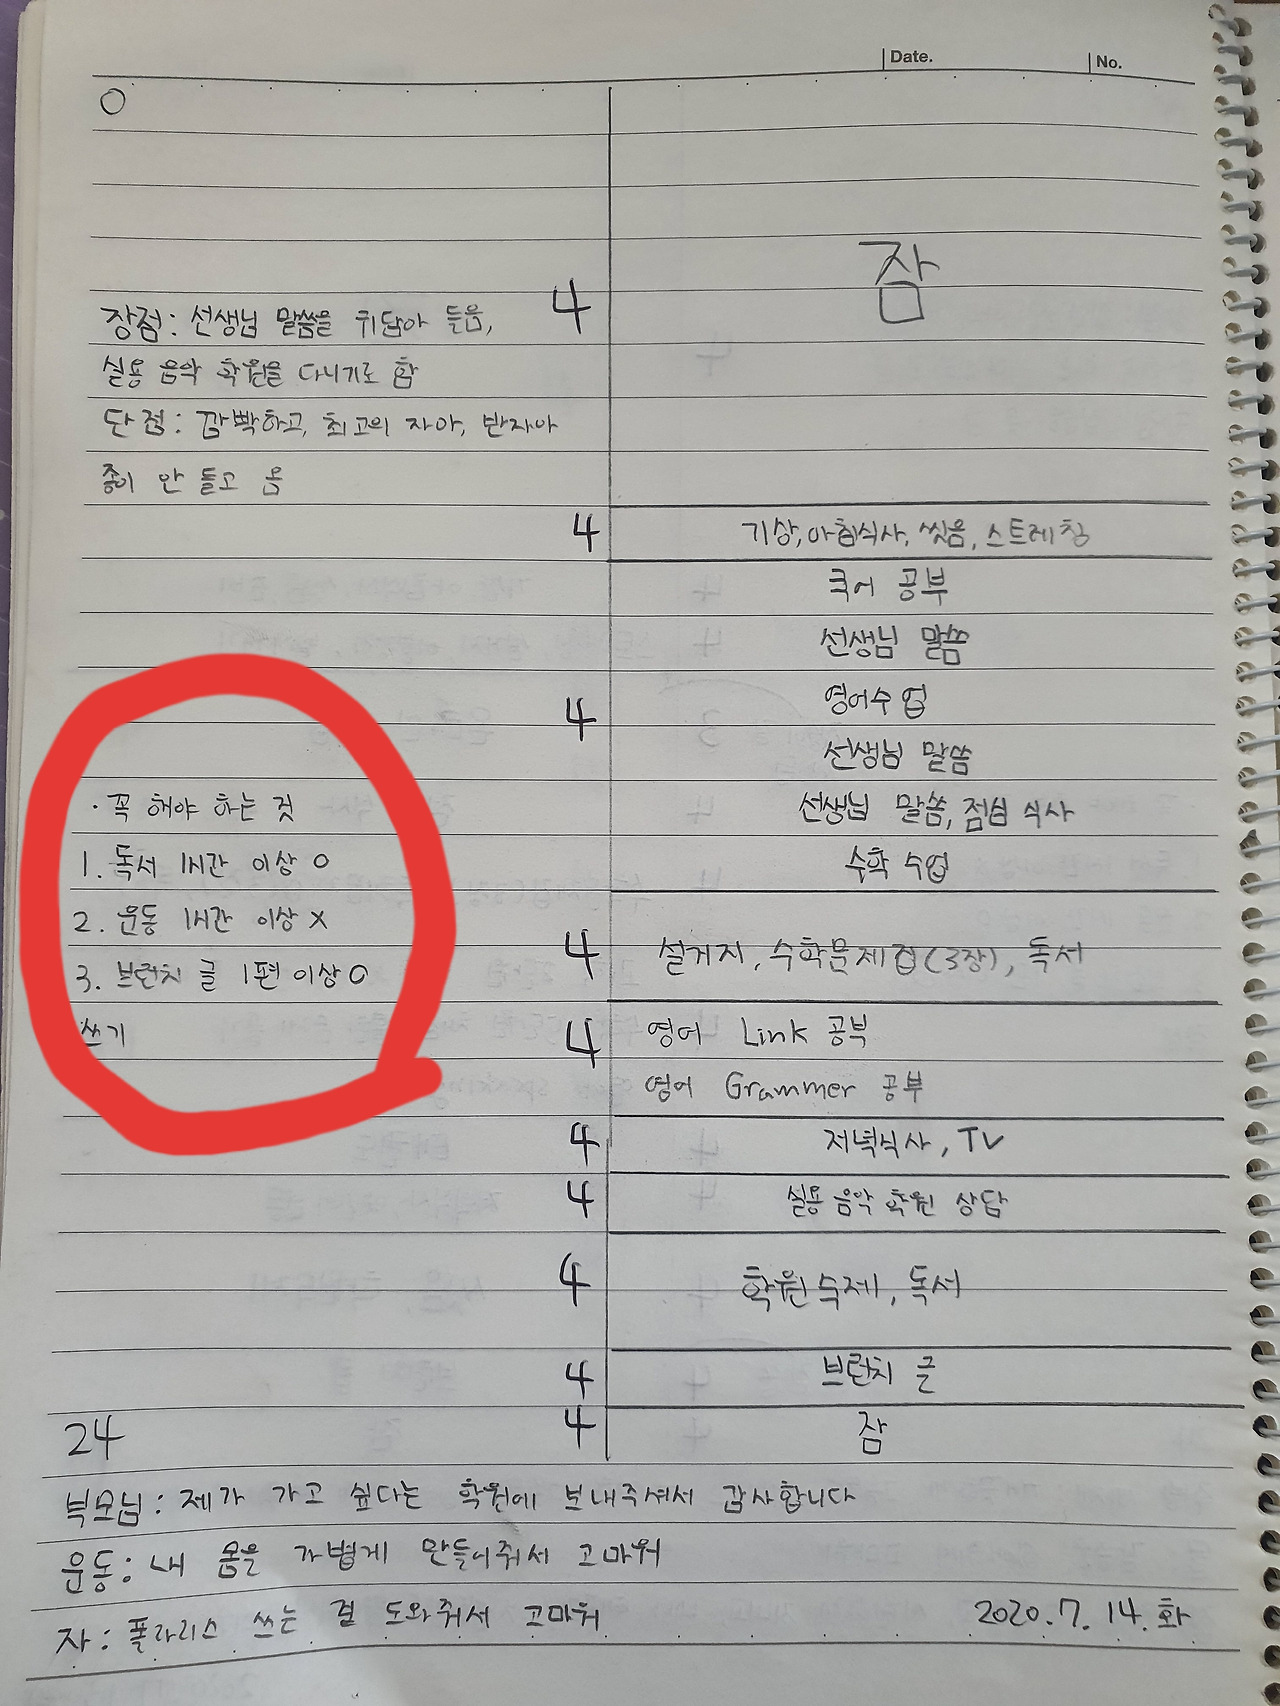 Date. No.
0
잠
4
장점: 선생님 말씀을 귀담아 들음,
실용 음악 학원을 다니기로 함
단점: 깜빡하고, 최고의 자아, 반자아
종이 안 들고 옴
4 기상, 아침식사, 씻음, 스트레칭
국어 공부
선생님 말씀
4 영어수업
선생님 말씀
· 꼭 해야 하는 것 선생님 말씀, 점심 식사
1. 독서 1시간 이상 O 수학 수업
2. 운동 1시간 이상 X
4 설거지, 수학문제집(3장), 독서
3. 브런치 글 1편 이상 O
쓰기 4 영어 Link 공부
영어 Grammer 공부
4 저녁식사, TV
4 실용 음악 학원 상담
4 학원숙제, 독서
4 브런치 글
24 4 잠
부모님: 제가 가고 싶다는 학원에 보내주셔서 감사합니다
운동: 내 몸을 가볍게 만들어줘서 고마워
자: 폴라리스 쓰는 걸 도와줘서 고마워 2020.7.14.화